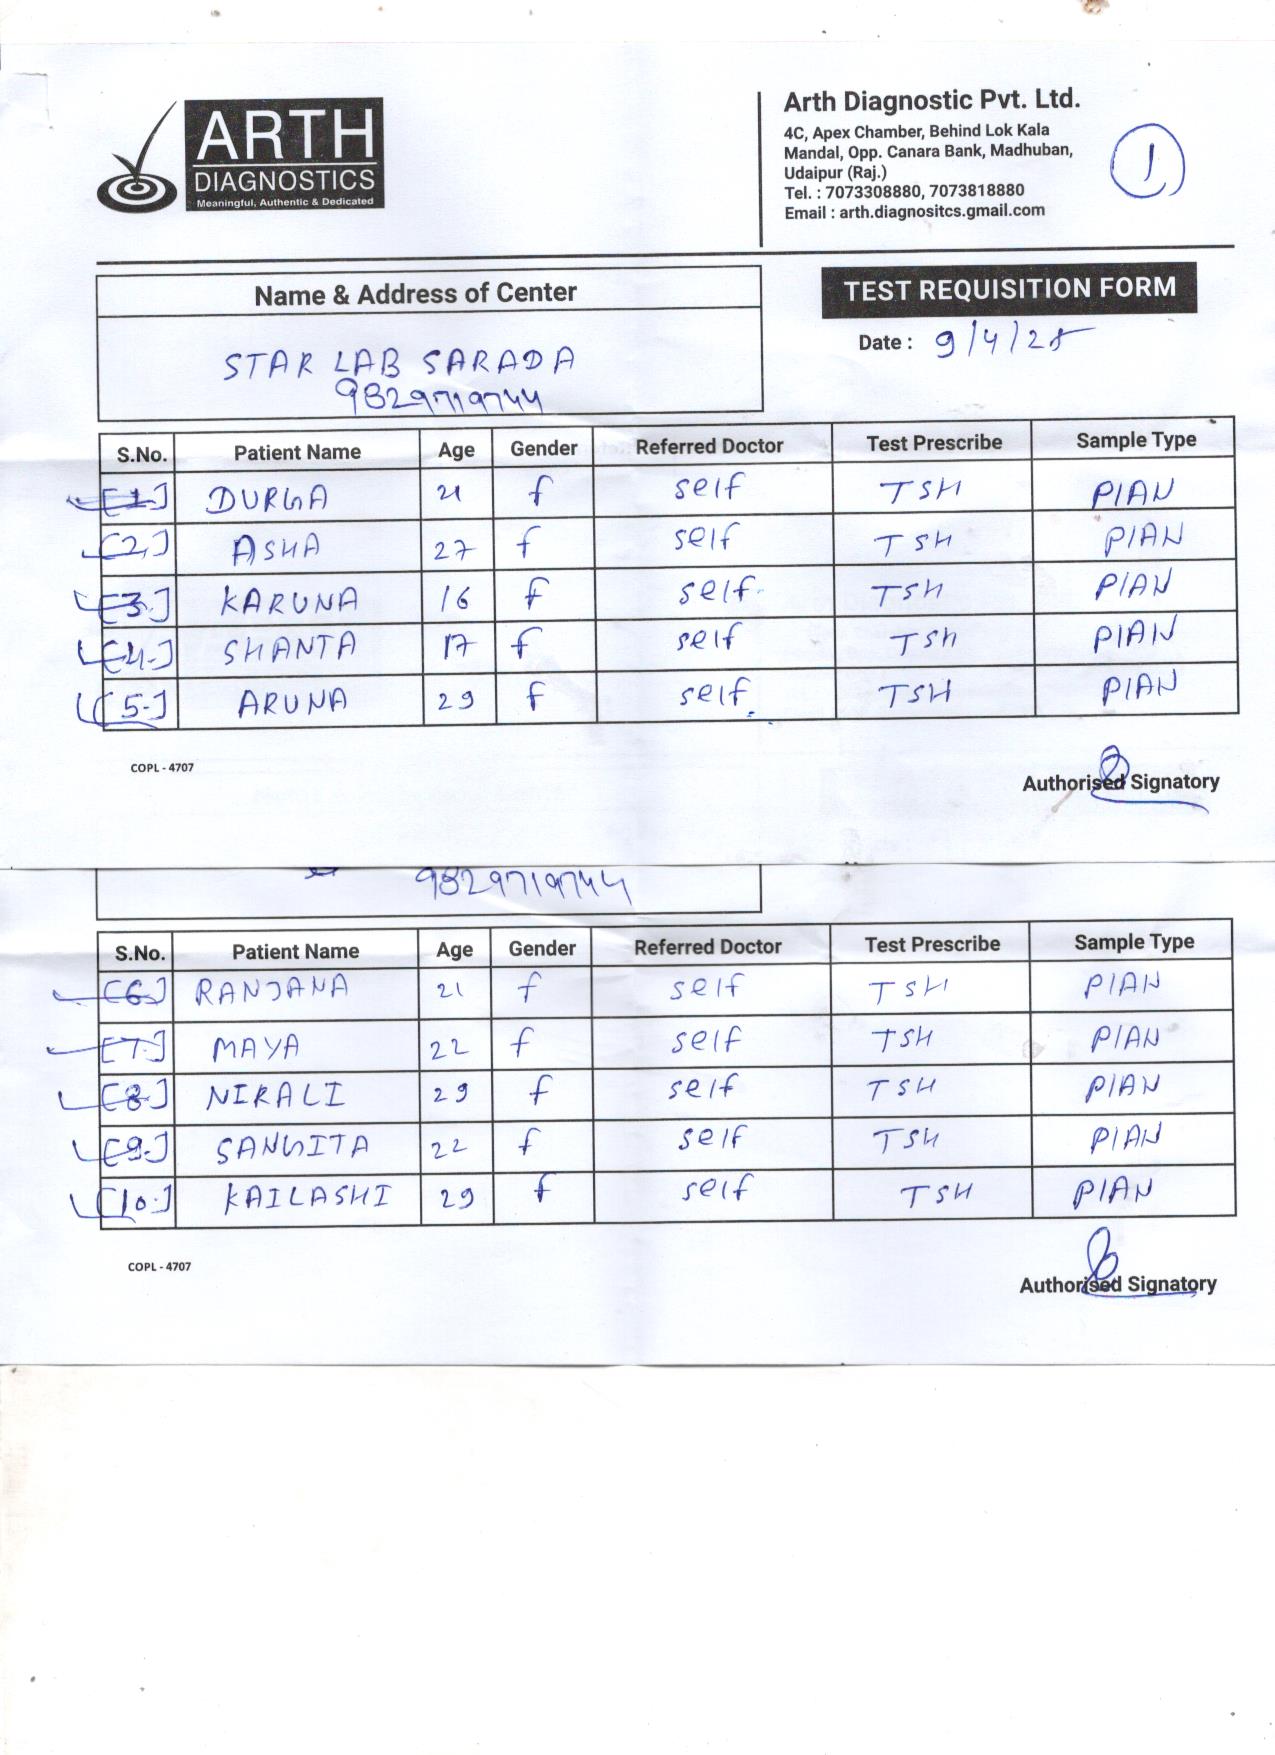 ARTH
DIAGNOSTICS
Meaningful, Authentic & Dedicated
Arth Diagnostic Pvt. Ltd.
4C, Apex Chamber, Behind Lok Kala
Mandal, Opp. Canara Bank, Madhuban,
Udaipur (Raj.)
Tel. : 7073308880, 7073818880
Email : arth.diagnositcs.gmail.com
1
Name & Address of Center
TEST REQUISITION FORM
STAR LAB SARADA
9829719744
Date : 9/4/25
S.No. Patient Name Age Gender Referred Doctor Test Prescribe Sample Type
[1] DURGA 21 f self TSH PIAN
[2.] ASHA 27 f self TSH PIAN
[3.] KARUNA 16 f self. TSH PIAN
[4.] SHANTA 17 f self TSH PIAN
[5.] ARUNA 29 f self. TSH PIAN
COPL - 4707
Authorised Signatory
9829719744
S.No. Patient Name Age Gender Referred Doctor Test Prescribe Sample Type
[6.] RANJANA 21 f self TSH PIAN
[7.] MAYA 22 f self TSH PIAN
[8.] NIRALI 29 f self TSH PIAN
[9.] SANGITA 22 f self TSH PIAN
[10.] KAILASHI 29 f self TSH PIAN
COPL - 4707
Authorised Signatory